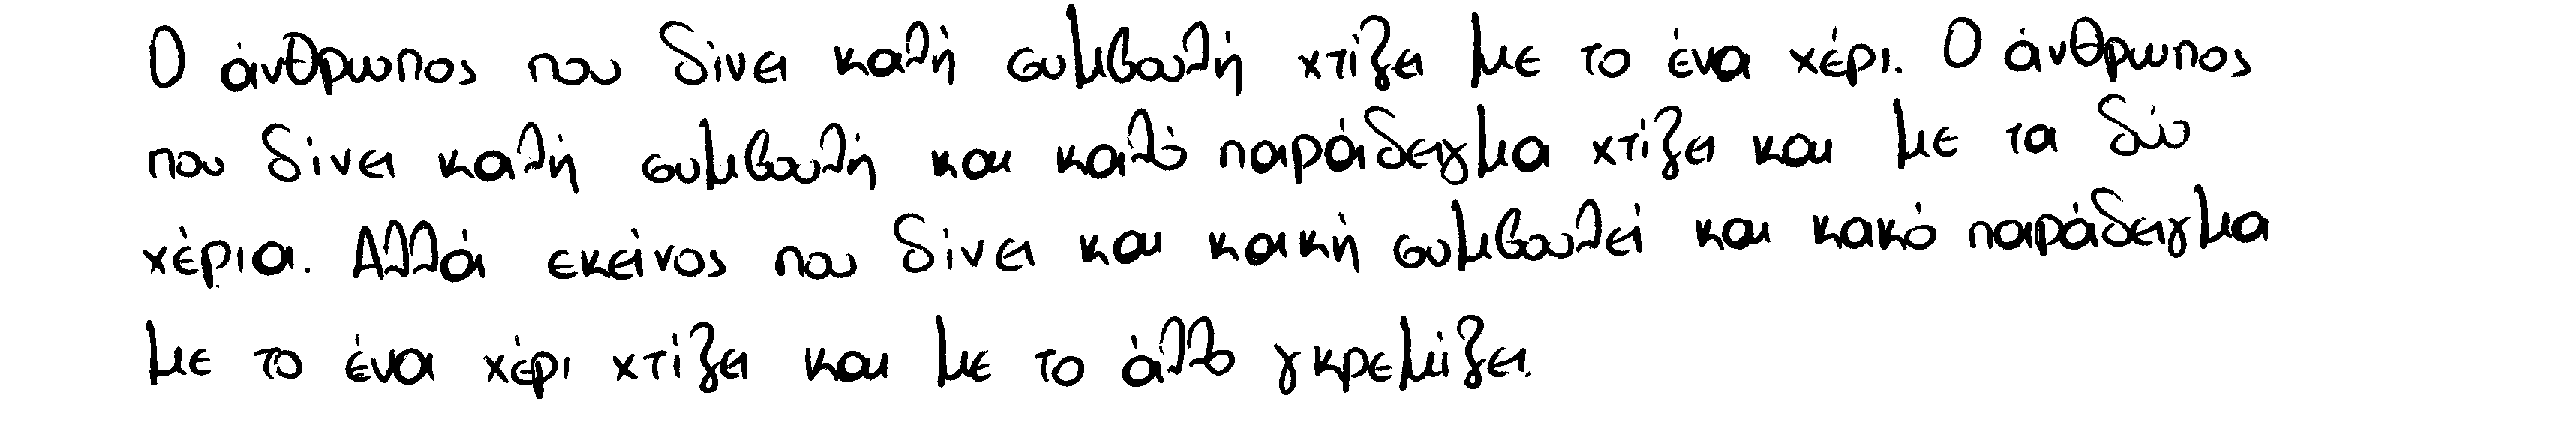 Ο άνθρωπος που δίνει καλή συμβουλή χτίζει με το ένα χέρι. Ο άνθρωπος
που δίνει καλή συμβουλή και καλό παράδειγμα χτίζει και με τα δύο
χέρια. Αλλά εκείνος που δίνει και κακή συμβουλεί και κακό παράδειγμα
με το ένα χέρι χτίζει και με το άλλο γκρεμίζει.